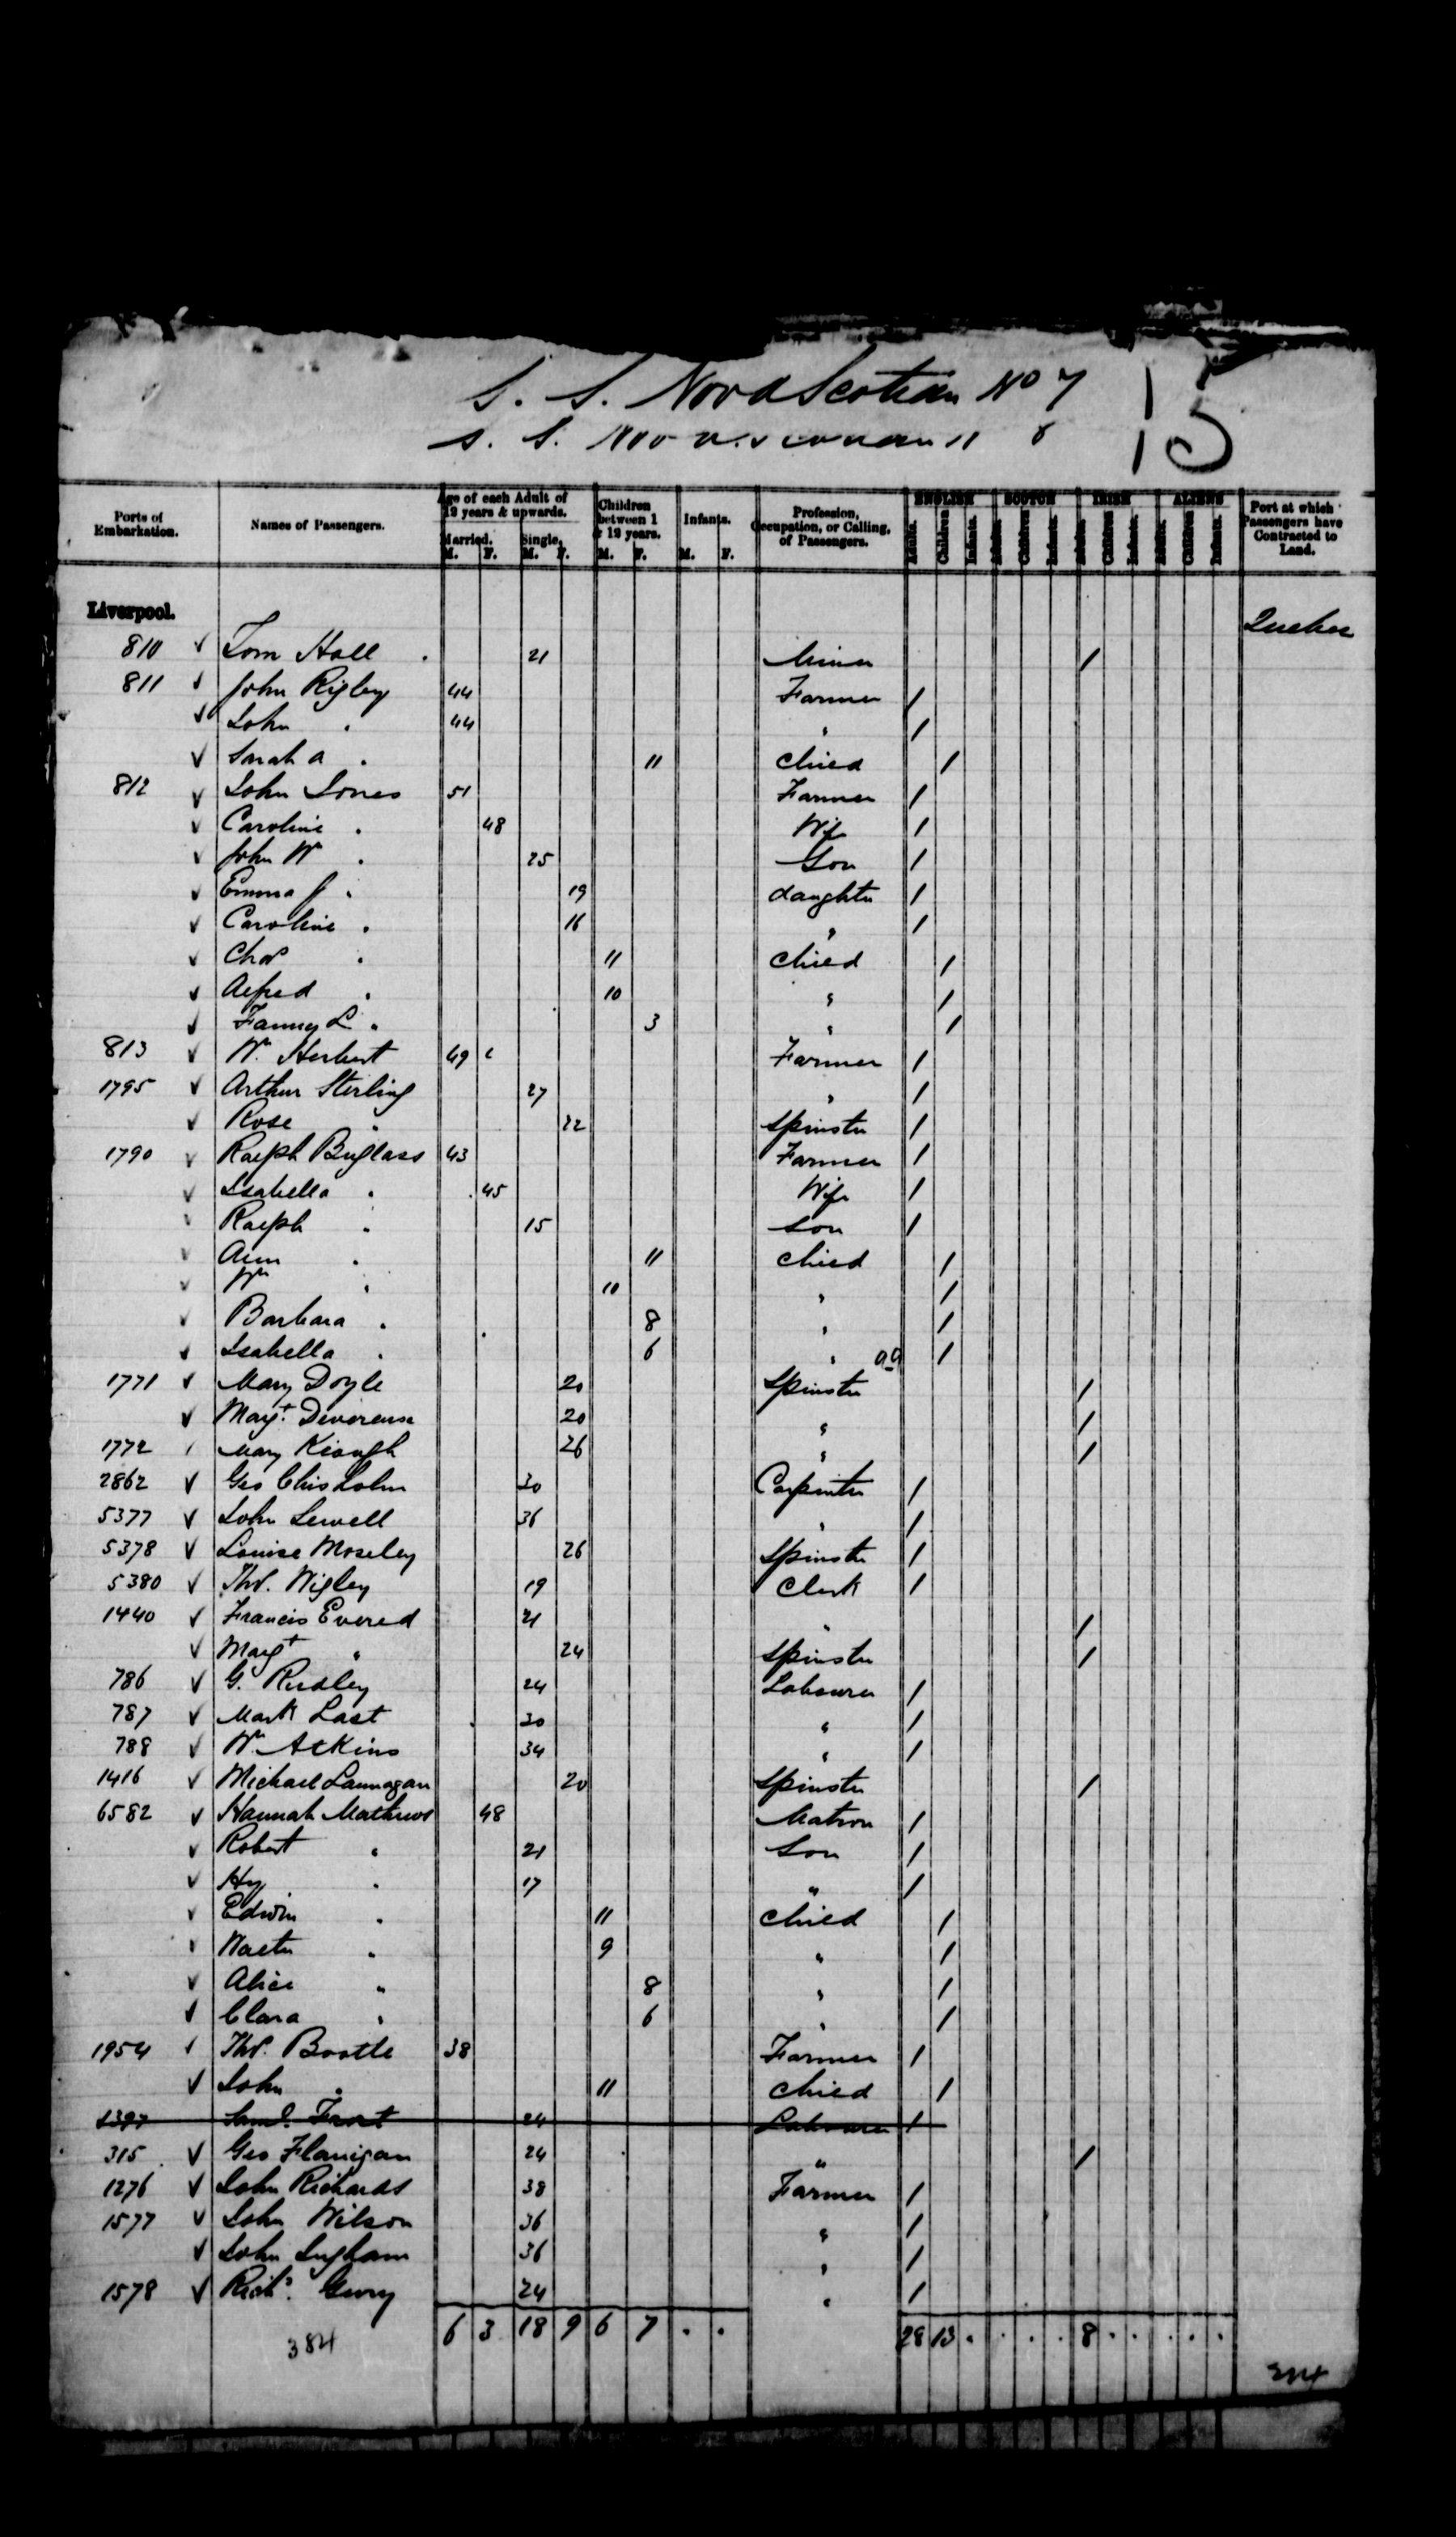 S. S. Nova Scotian No 7
15
Ports of Embarkation. Names of Passengers. Age of each Adult of 12 years & upwards. Married. M. F. Single. M. F. Children between 1 & 12 years. M. F. Infants. M. F. Profession, Occupation, or Calling, of Passengers. ENGLISH Adults. Children Infants. SCOTCH Adults. Children Infants. IRISH Adults. Children Infants. ALIENS Adults. Children Infants. Port at which Passengers have Contracted to Land.
Liverpool. Quebec
810 ✓ Tom Hall . 21 Miner /
811 ✓ John Rigley 44 Farmer /
✓ John . 44 " /
✓ Sarah A . 11 Child /
812 ✓ John Jones 51 Farmer /
✓ Caroline . 48 Wife /
✓ John W . 25 Son /
✓ Emma J . 19 daughter /
✓ Caroline . 16 " /
✓ Chas . 11 Child /
✓ Alfred . 10 " /
✓ Fanny L . 3 " /
813 ✓ Wm Herbert 49 Farmer /
1795 ✓ Arthur Sterling 27 " /
✓ Rose . 22 Spinster /
1790 ✓ Ralph Buglass 43 Farmer /
✓ Isabella . 45 Wife /
✓ Ralph . 15 Son /
✓ Ann . 11 Child /
✓ Wm . 10 " /
✓ Barbara . 8 " /
✓ Isabella . 6 " /
1771 ✓ Mary Doyle 20 Spinster /
✓ Margt. Devereux 20 " /
1772 ✓ Mary Keough 26 " /
2862 ✓ Geo Chisholm 30 Carpenter /
5377 ✓ John Sewell 36 " /
5378 ✓ Louise Moseley 26 Spinster /
5380 ✓ Thos. Wigley 19 Clerk /
1440 ✓ Francis Evered 21 " /
✓ Margt " 24 Spinster /
786 ✓ G. Ridley 24 Labourer /
787 ✓ Mark Last 30 " /
788 ✓ Wm Atkins 34 " /
1416 ✓ Michael Lannagan 20 Spinster /
6582 ✓ Hannah Mathews 48 Matron /
✓ Robert " 21 Son /
✓ Hy . 17 " /
✓ Edwin . 11 Child /
✓ Walter . 9 " /
✓ Alice " 8 " /
✓ Clara . 6 " /
1954 ✓ Thos. Bootle 38 Farmer /
✓ John . 11 Child /
1397 Saml. Frost 24 Labourer /
315 ✓ Geo Flanigan 24 " /
1276 ✓ John Richards 38 Farmer /
1577 ✓ John Wilson 36 " /
✓ John Ingham 36 " /
1578 ✓ Richd. Gurry 24 " /
384 6 3 18 9 6 7 . . 28 13 . . . . 8 . . . . .